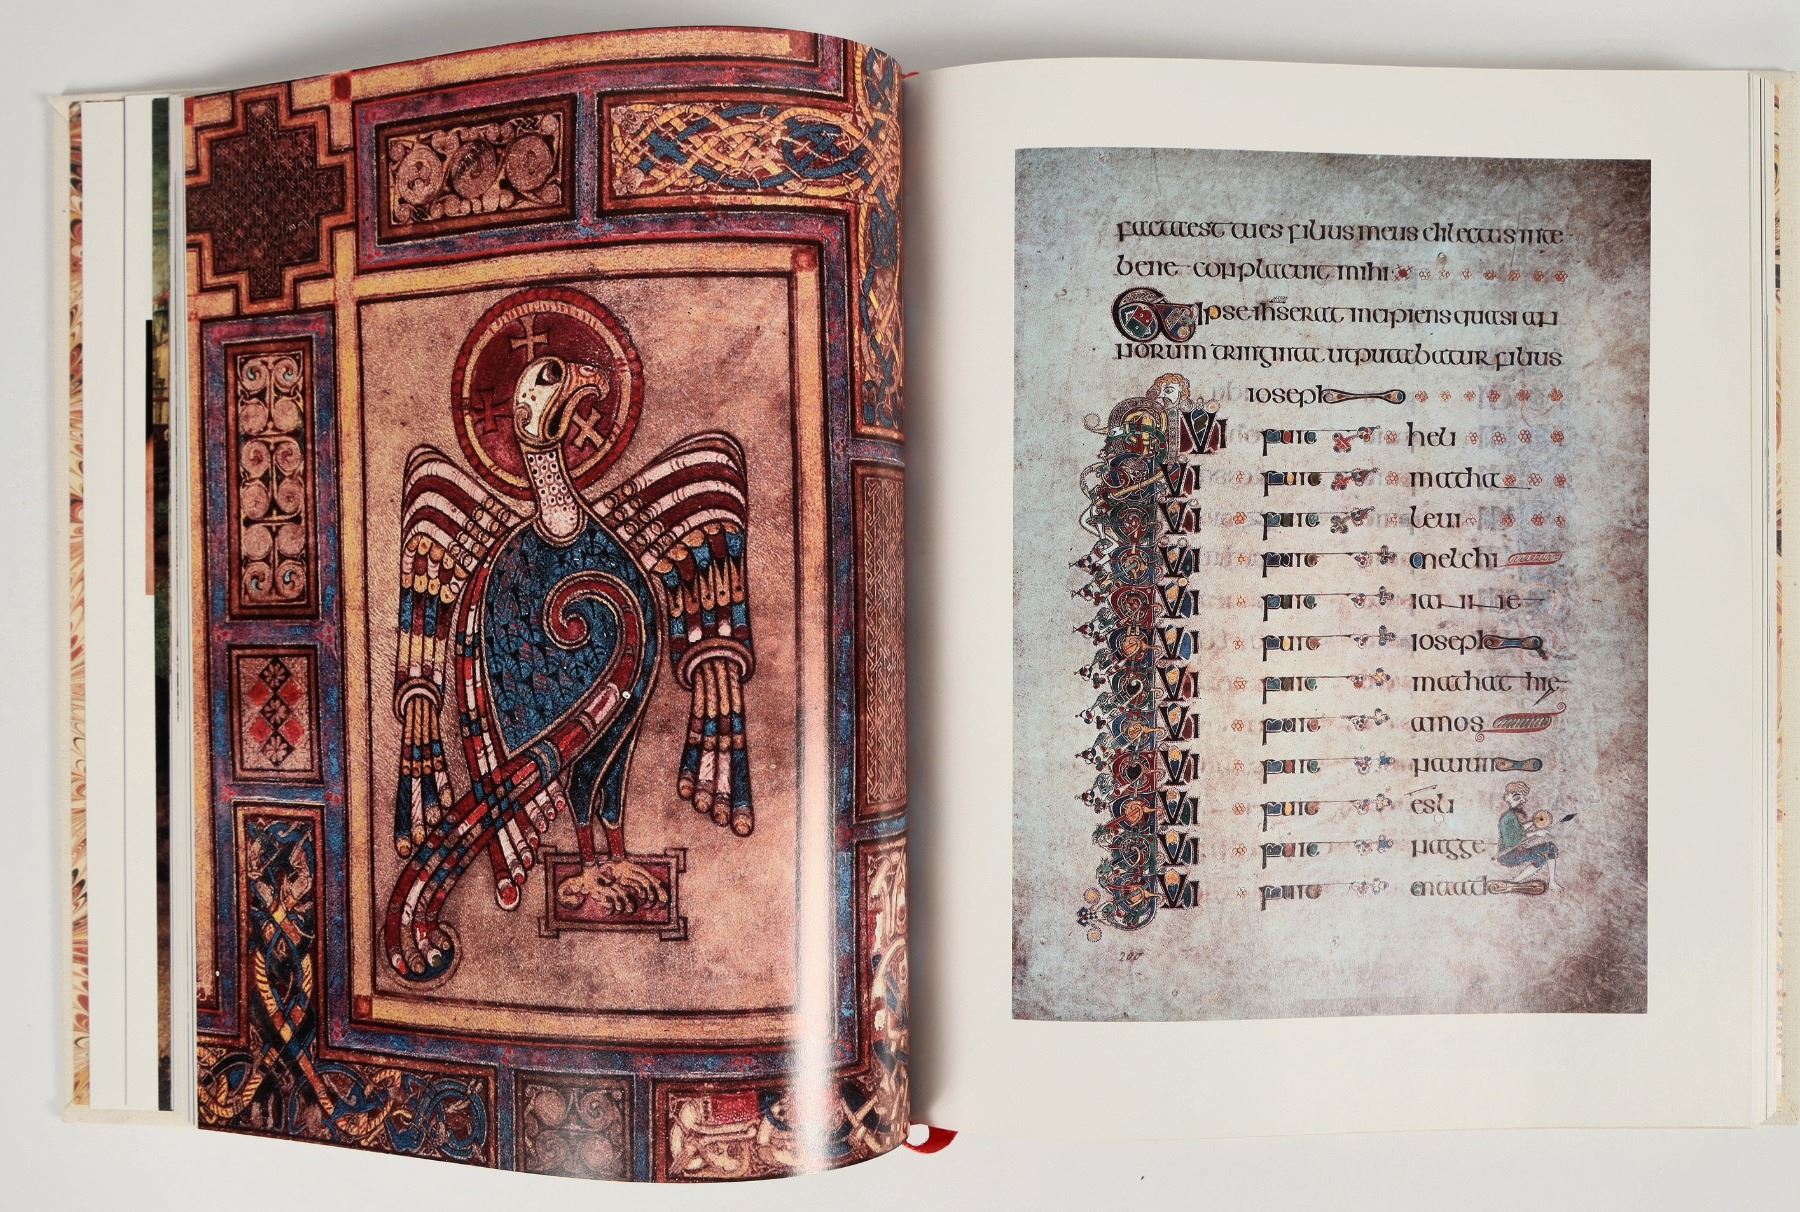 facta est tu es filius meus dilectus in te
bene conplacuit mihi
Et ipse ihs erat incipiens quasi an
norum triginta ut putabatur filius
ioseph
QVI fuit heli
QVI fuit matha
QVI fuit levi
QVI fuit melchi
QVI fuit iannae
QVI fuit ioseph
QVI fuit mathathie
QVI fuit amos
QVI fuit nauum
QVI fuit esli
QVI fuit nagge
QVI fuit maad
200